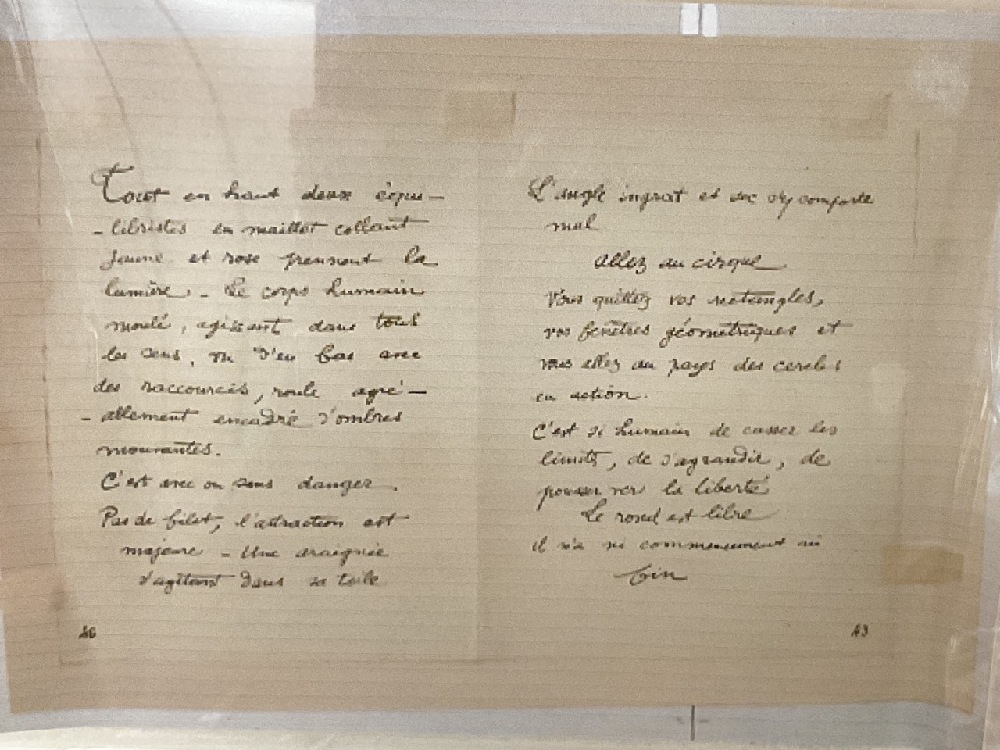 Tout en haut deux équi-
-libristes en maillot collant
jaune et rose prennent la
lumière - Le corps humain
moulé, agissant dans tous
les sens, vu d'en bas avec
des raccourcis, roule agré-
-ablement encadré d'ombres
mouvantes.
C'est avec ou sans danger.
Pas de filet, l'attraction est
majeure - Une araignée
s'agitant dans sa toile
46
L'angle ingrat et sec s'y comporte
mal
Allez au cirque
Vous quittez vos rectangles,
vos fenêtres géométriques et
vous allez au pays des cercles
en action.
C'est si humain de casser les
limites, de s'agrandir, de
pousser vers la liberté
Le rond est libre
il n'a ni commencement ni
fin